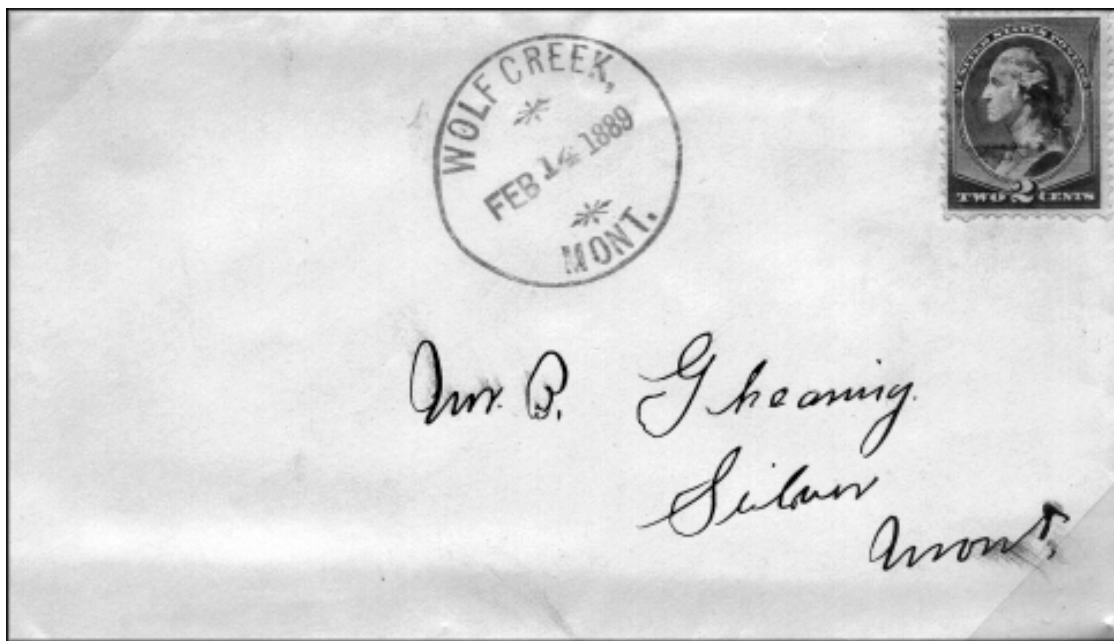 WOLF CREEK,
FEB 14 1889
MONT.
UNITED STATES POSTAGE
TWO 2 CENTS
Mr. B. Ghearing.
Silver
Mont.